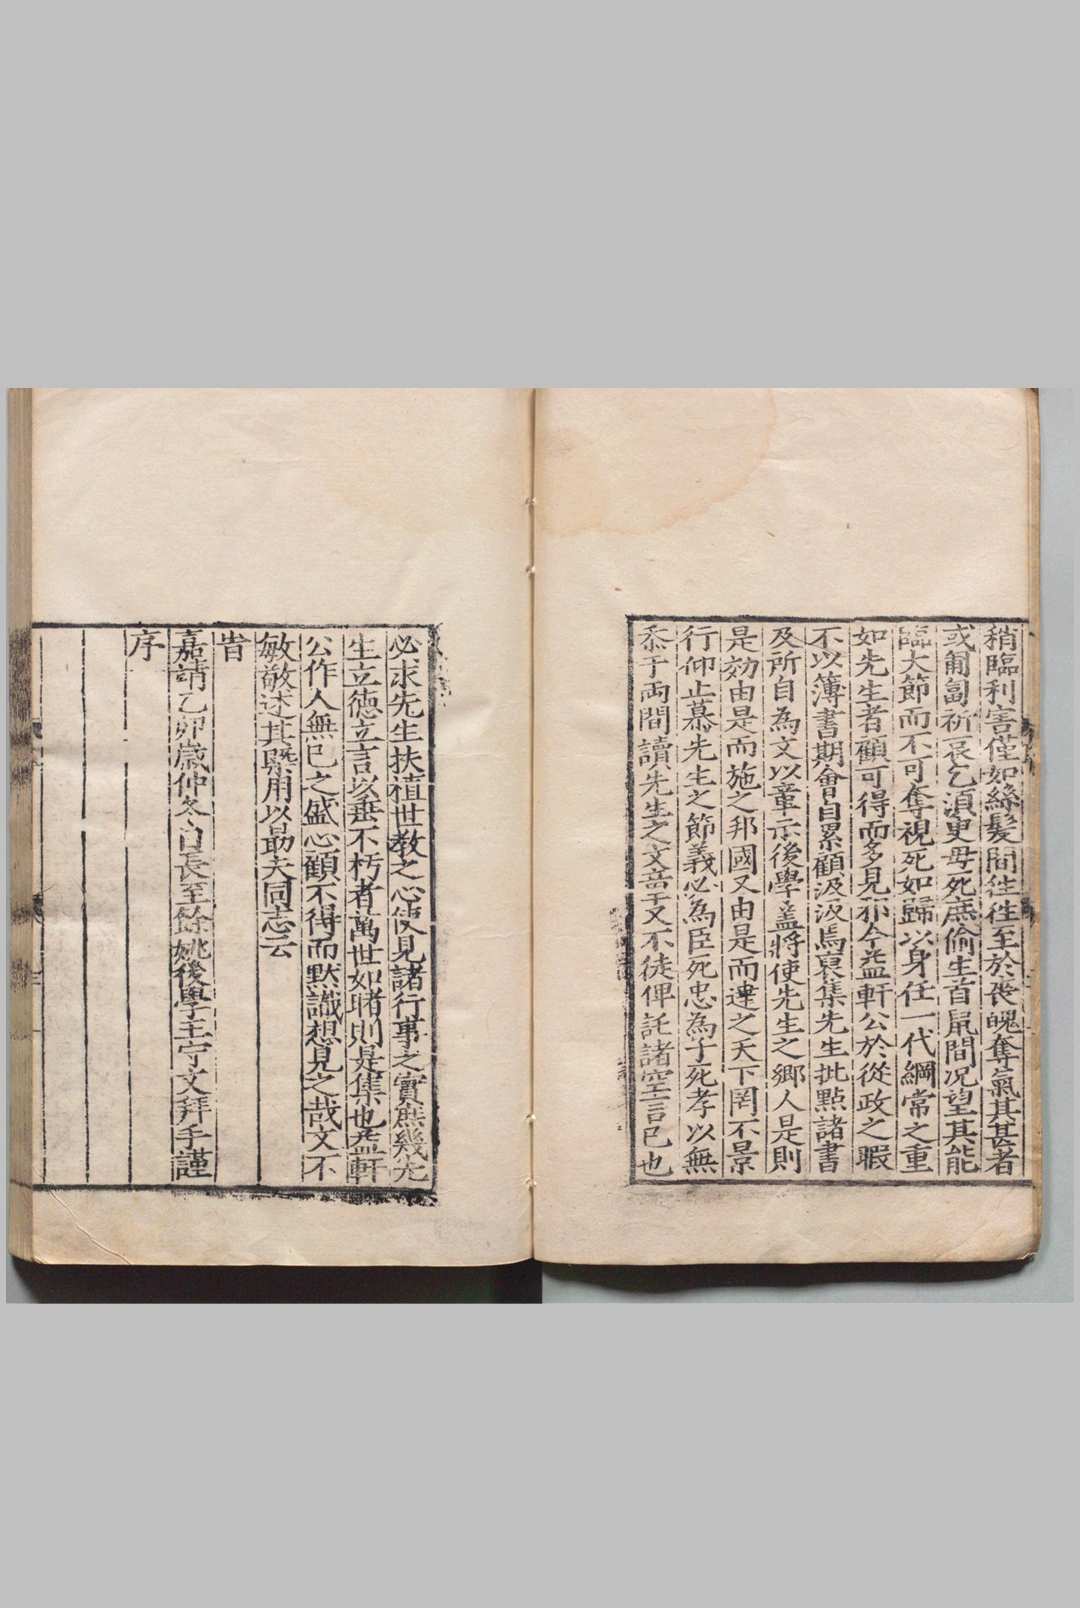 稍臨利害僅如絲髮間徃徃至於喪魄奪氣其甚者
或匍匐祈哀乞須臾毋死庶偷生首鼠間况望其能
臨大節而不可奪視死如歸以身任一代綱常之重
如先生者顧可得而多見邪今孟軒公於從政之暇
不以簿書期會自累顧汲汲焉裒集先生批點諸書
及所自為文以章示後學盖將使先生之鄉人是則
是効由是而施之邦國又由是而達之天下罔不景
行仰止慕先生之節義必為臣死忠為子死孝以無
忝于両間讀先生之文章又不徒俾託諸空言已也
必求先生扶植世教之心使見諸行事之實庶幾先
生立德立言以垂不朽者萬世如睹則是集也孟軒
公作人無已之盛心顧不得而默識想見之哉文不
敏敬述其槩用以勗夫同志云
旹
嘉靖乙卯歲仲冬日長至餘姚後學王守文拜手謹
序